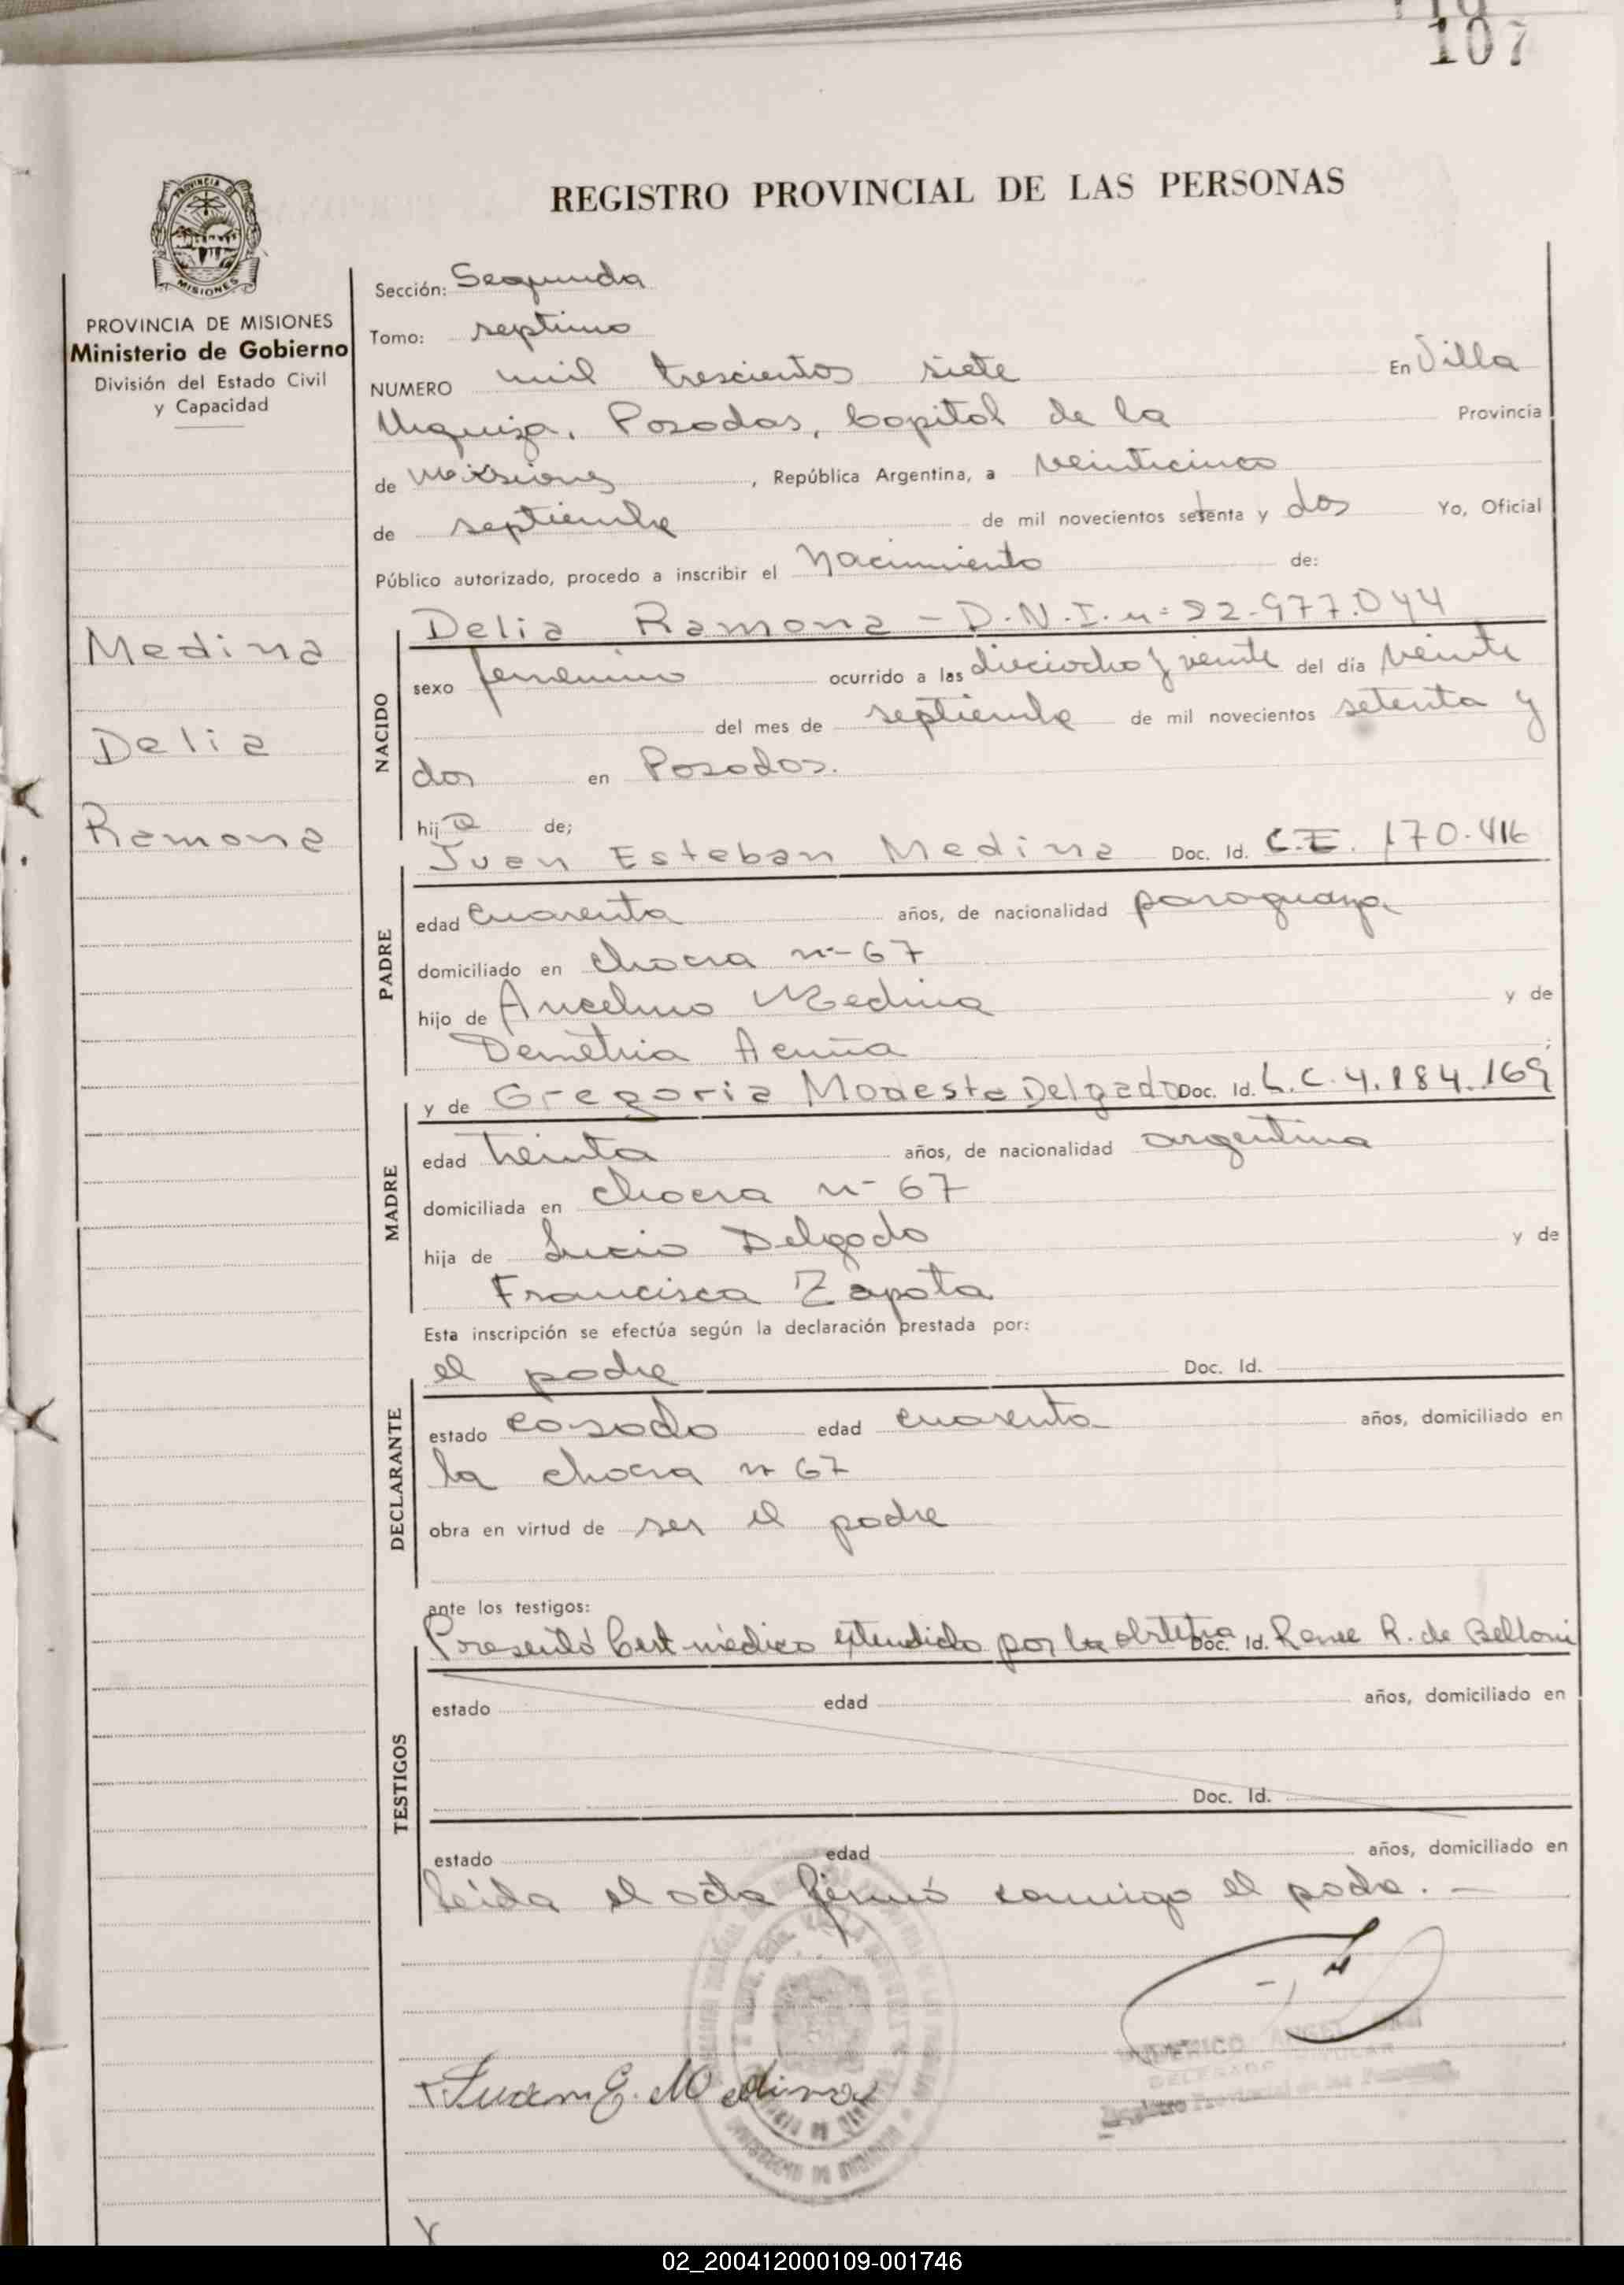 107
REGISTRO PROVINCIAL DE LAS PERSONAS
PROVINCIA DE
MISIONES
PROVINCIA DE MISIONES
Ministerio de Gobierno
División del Estado Civil
y Capacidad
Medina
Delia
Ramona
Sección: Segunda
Tomo: septimo
NUMERO mil trescientos siete En Villa
Urquiza, Posadas, Capital de la Provincia
de Misiones, República Argentina, a veinticinco
de septiembre de mil novecientos setenta y dos Yo, Oficial
Público autorizado, procedo a inscribir el Nacimiento de:
Delia Ramona - D.N.I. nº 22.977.044
NACIDO
sexo femenino ocurrido a las dieciocho y veinte del día veinte
del mes de septiembre de mil novecientos setenta y
dos en Posadas.
hija de;
Juan Esteban Medina Doc. Id. C.I. 170.416
PADRE
edad cuarenta años, de nacionalidad paraguaya
domiciliado en chacra nº 67
hijo de Ancelmo Medina y de
Demetria Acuña
y de Gregoria Modesta Delgado Doc. Id. L.C. 4.184.169
MADRE
edad treinta años, de nacionalidad argentina
domiciliada en chacra nº 67
hija de Lucio Delgado y de
Francisca Zapata
Esta inscripción se efectúa según la declaración prestada por:
el padre Doc. Id.
DECLARANTE
estado casado edad cuarenta años, domiciliado en
la chacra nº 67
obra en virtud de ser el padre
ante los testigos:
Presentó Cert médico extendido por la obstetra Doc. Id. Renee R. de Belloni
TESTIGOS
estado edad años, domiciliado en
Doc. Id.
estado edad años, domiciliado en
Leida el acta firmó conmigo el padre. -
ANGEL
DELEGADO TITULAR
Registro Provincial de las Personas
Juan E. Medina
02_200412000109-001746